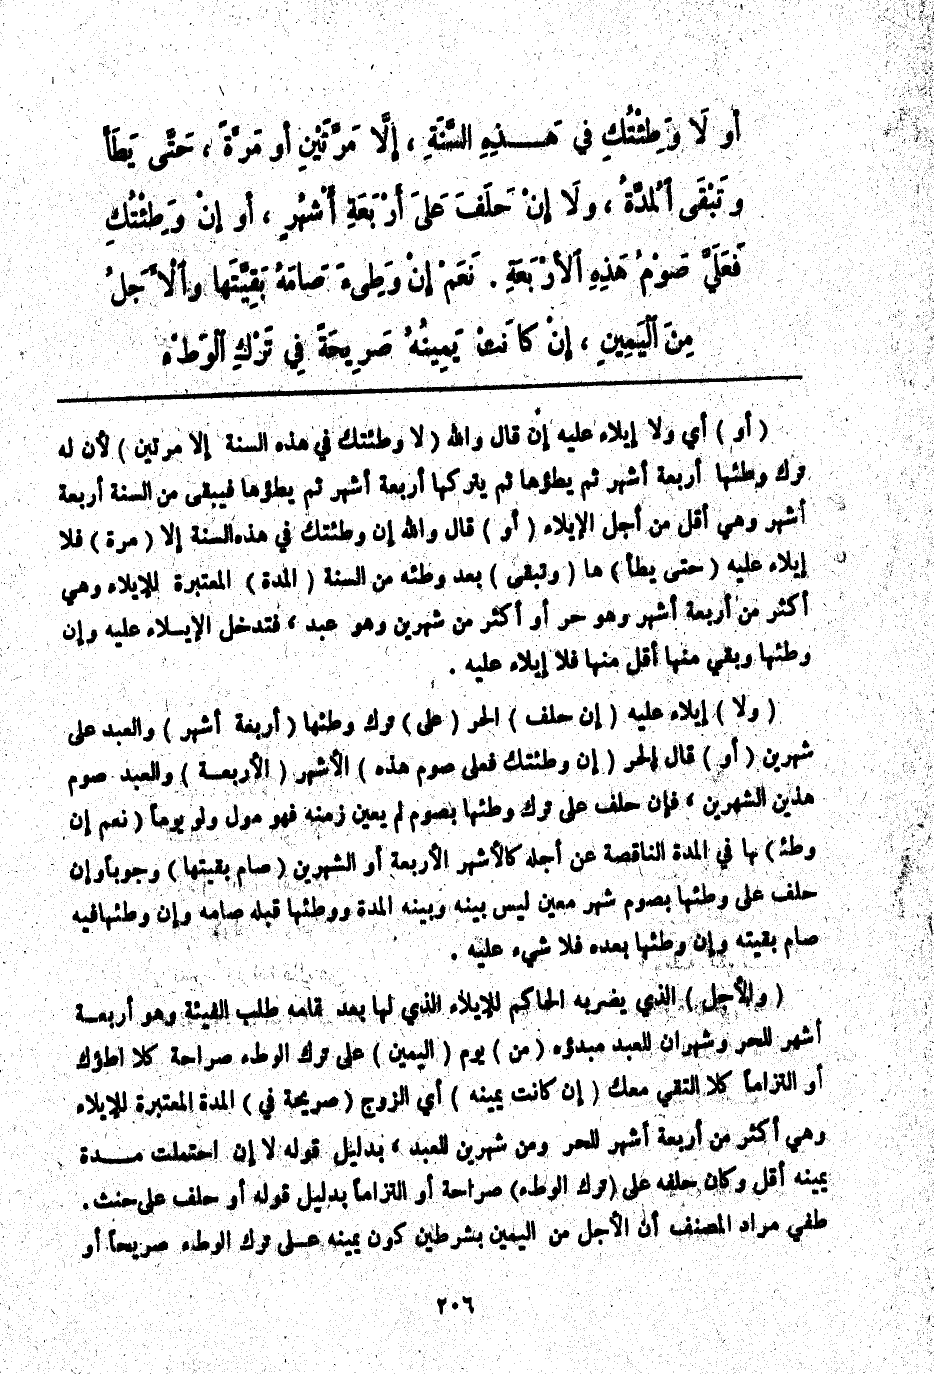 أو لَا وَطِئْتُكِ فِي هَـــذِهِ السَّنَةِ ، إِلَّا مَرَّتَيْنِ أو مَرَّةً ، حَتَّى يَطَأَ
وتَبْقَى اَلْمُدَّةُ ، ولَا إِنْ حَلَفَ عَلَى أَرْبَعَةِ أَشْهُرٍ ، أو إِنْ وَطِئْتُكِ
فَعَلَيَّ صَوْمُ هَذِهِ اَلْأَرْبَعَةِ . نَعَمْ إِنْ وَطِىءَ صَامَهُ بَقِيَّتَها واَلْأَجَلُ
مِنَ اَلْيَمِينِ ، إِنْ كَانَتْ يَمِينُهُ صَرِيحَةً فِي تَرْكِ اَلْوَطْءِ
( أو ) أي ولا إيلاء عليه إن قال والله ( لا وطئتك في هذه السنة إلا مرتين ) لأن له
ترك وطئها أربعة أشهر ثم يطؤها ثم يتركها أربعة أشهر ثم يطؤها فيبقى من السنة أربعة
أشهر وهي أقل من أجل الإيلاء ( أو ) قال والله إن وطئتك في هذه السنة إلا ( مرة ) فلا
إيلاء عليه ( حتى يطأ ) ها ( وتبقى ) بعد وطئه من السنة ( المدة ) المعتبرة للإيلاء وهي
أكثر من أربعة أشهر وهو حر أو أكثر من شهرين وهو عبد ، فتدخل الإيـلاء عليه وإن
وطئها وبقي منها أقل منها فلا إيلاء عليه .
( ولا ) إيلاء عليه ( إن حلف ) الحر ( على ) ترك وطئها ( أربعة أشهر ) والعبد على
شهرين ( أو ) قال الحر ( إن وطئتك فعلى صوم هذه ) الأشهر ( الأربعــة ) والعبد صوم
هذين الشهرين ، فإن حلف على ترك وطئها بصوم لم يعين زمنه فهو مول ولو يوماً ( نعم إن
وطئ ) بها في المدة الناقصة عن أجله كالأشهر الأربعة أو الشهرين ( صام بقيتها ) وجوباً وإن
حلف على وطئها بصوم شهر معين ليس بينه وبينه المدة ووطئها قبله صامه وإن وطئها فيه
صام بقيته وإن وطئها بعده فلا شيء عليه .
( والأجل ) الذي يضربه الحاكم للإيلاء الذي لها بعد تمامه طلب الفيئة وهو أربعــة
أشهر للحر وشهران للعبد مبدؤه ( من ) يوم ( اليمين ) على ترك الوطء صراحة كلا اطؤك
أو التزاماً كلا التقي معك ( إن كانت يمينه ) أي الزوج ( صريحة في ) المدة المعتبرة للإيلاء
وهي أكثر من أربعة أشهر للحر ومن شهرين للعبد ، بدليل قوله لا إن احتملت مـــدة
يمينه أقل وكان حلفه على ( ترك الوطء ) صراحة أو التزاماً بدليل قوله أو حلف على حنث .
طفي مراد المصنف أن الأجل من اليمين بشرطين كون يمينه عـلى ترك الوطء صريحاً أو
٢٠٦